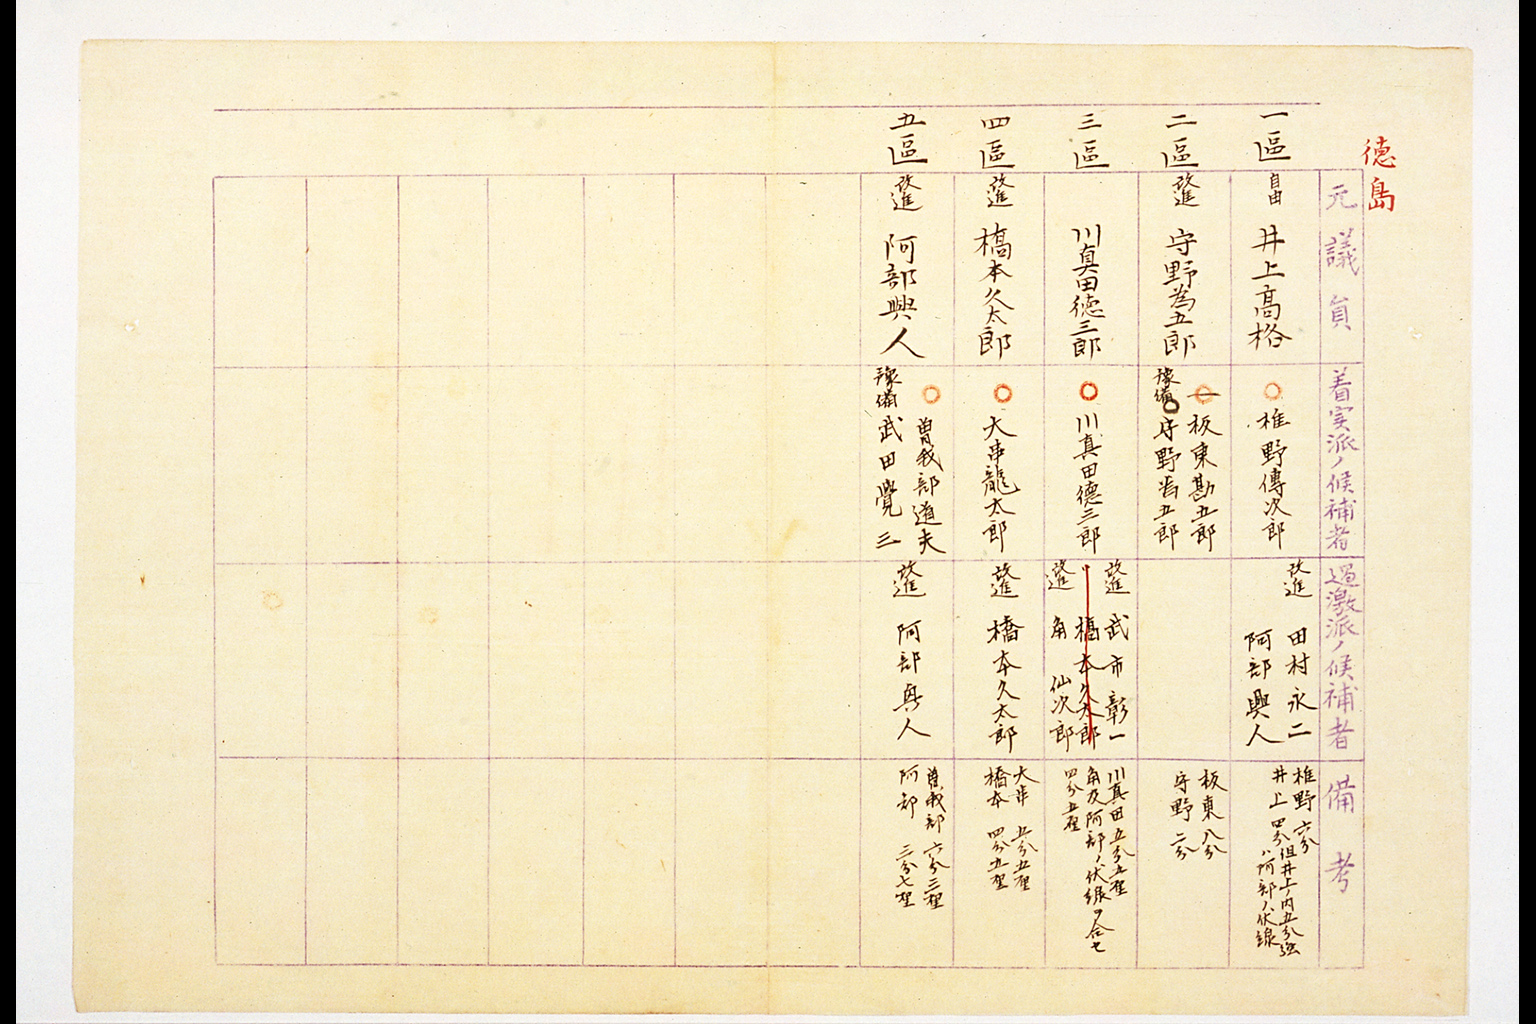 徳島
元議員
着実派ノ候補者
過激派ノ候補者
備考
一區
自由
井上高格
椎野傳次郎
改進
田村永二
阿部興人
椎野六分
井上四分但井上ノ内五分強
ハ阿部ノ伏線
二區
改進
守野為五郎
板東勘五郎
豫備
守野為五郎
板東八分
守野二分
三區
川真田徳三郎
川真田徳三郎
改進
武市彰一
橋本久太郎
改進
角仙次郎
川真田五分五厘
角及阿部ノ伏線ヲ合セ
四分五厘
四區
改進
橋本久太郎
大串龍太郎
改進
橋本久太郎
大串五分五厘
橋本四分五厘
五區
改進
阿部興人
曽我部道夫
豫備
武田覺三
改進
阿部興人
曽我部六分三厘
阿部三分七厘